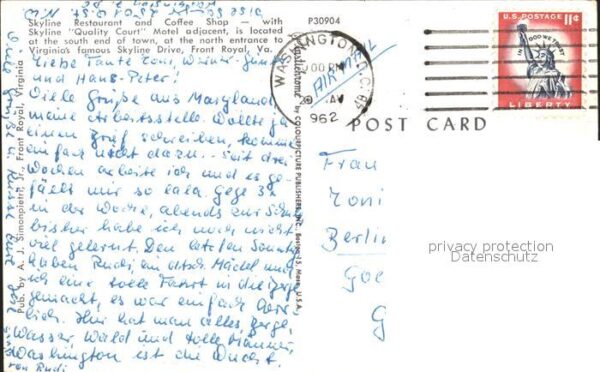 Skyline Restaurant and Coffee Shop — with
Skyline "Quality Court" Motel adjacent, is located
at the south end of town, at the north entrance to
Virginia's famous Skyline Drive, Front Royal, Va.
P30904
Liebe Tante Toni,
und Hans-Peter!
Viele Grüße aus Maryland
meine Arbeitsstelle. Wollte ja
einen Brief schreiben, komme
einfach nicht dazu. Seit drei
Wochen arbeite ich und es ge-
fällt mir so lala. Gege 3x
in der Woche, abends zur Schule
bisher habe ich noch nicht
viel gelernt. Den letzten Sonntag
haben Rudi, ein dtsch. Mädel und
ich eine tolle Fahrt in die Berge
gemacht, es war einfach herr-
lich. Hier hat man alles, Berge,
Wasser, Wald und tolle Männer,
Washington ist die Wucht.
von Rudi
Viele Grüße u. Küsse Eure
Pub. by A. J. Simonpietri, Jr., Front Royal, Virginia
by COLOURPICTURE PUBLISHERS, INC., Boston 15, Mass., U.S.A.
AIR MAIL
WASHINGTON, D.C.
00 PM
1962
U.S. POSTAGE 11¢
IN GOD WE TRUST
LIBERTY
POST CARD
Frau
Toni
Berlin
privacy protection
Datenschutz